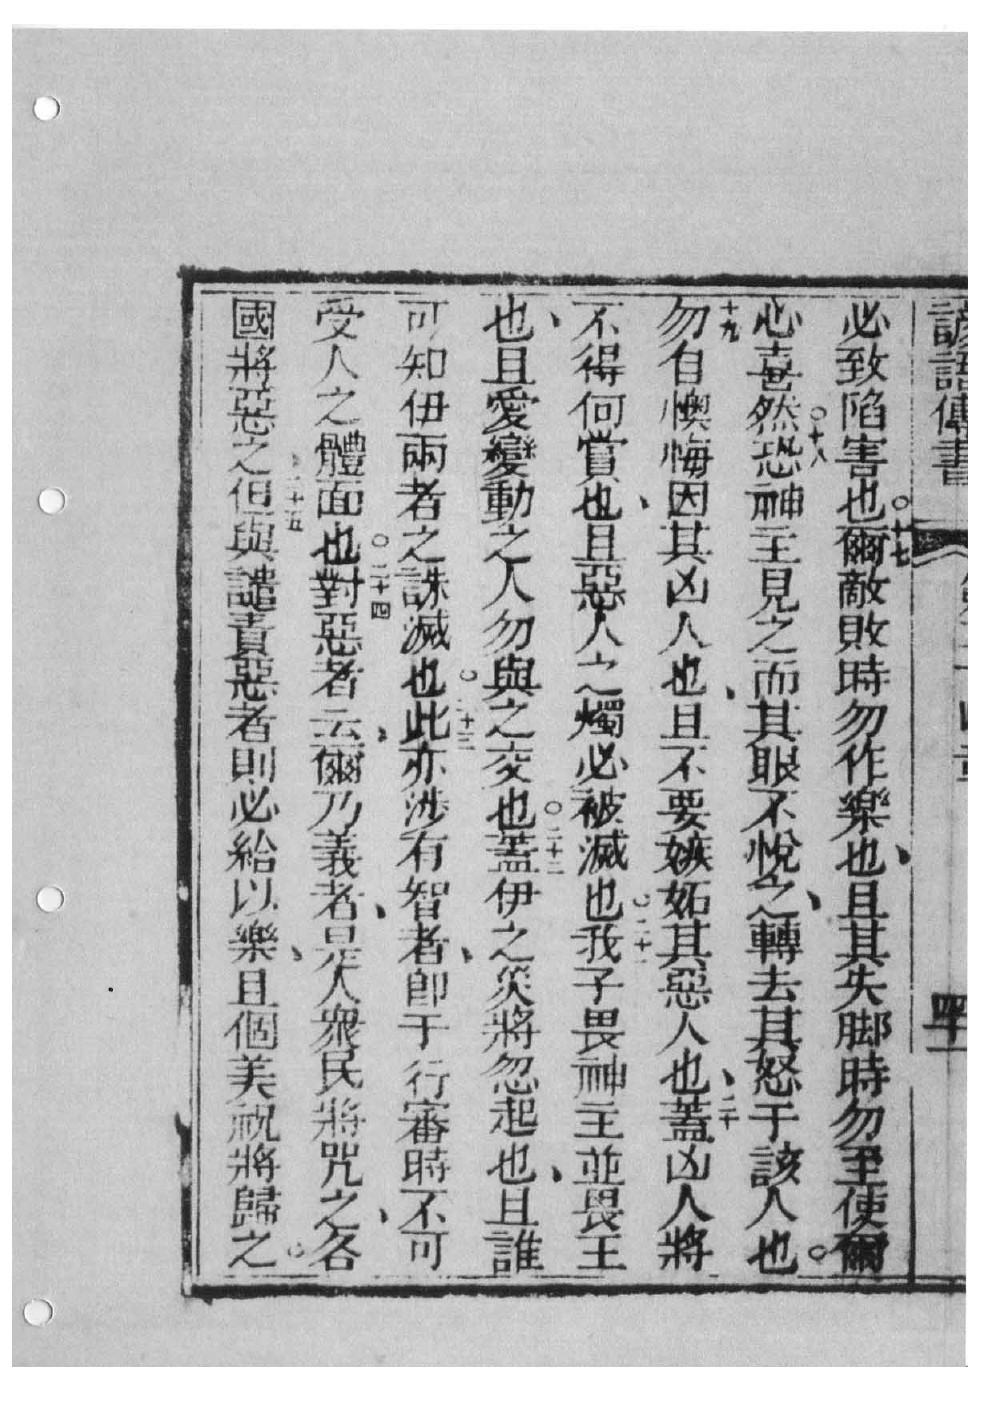 諺語傳書 第二十四章 四十
必致陷害也。十七爾敵敗時勿作樂也、且其失脚時勿至使爾
心喜。十八然恐神主見之而其眼不悅之、轉去其怒于該人也。
十九勿自懊悔因其凶人也、且不要嫉妬其惡人也、二十蓋凶人將
不得何賞也、且惡人之燭必被滅也。二十一我子畏神主並畏王
也、且愛變動之人勿與之交也。二十二蓋伊之災將忽起也、且誰
可知伊兩者之誅滅也。二十三此亦涉有智者、卽于行審時不可
受人之體面也。二十四對惡者云、爾乃義者、是人衆民將咒之、各
國將惡之。二十五但與譴責惡者則必給以樂、且個美祝將歸之。